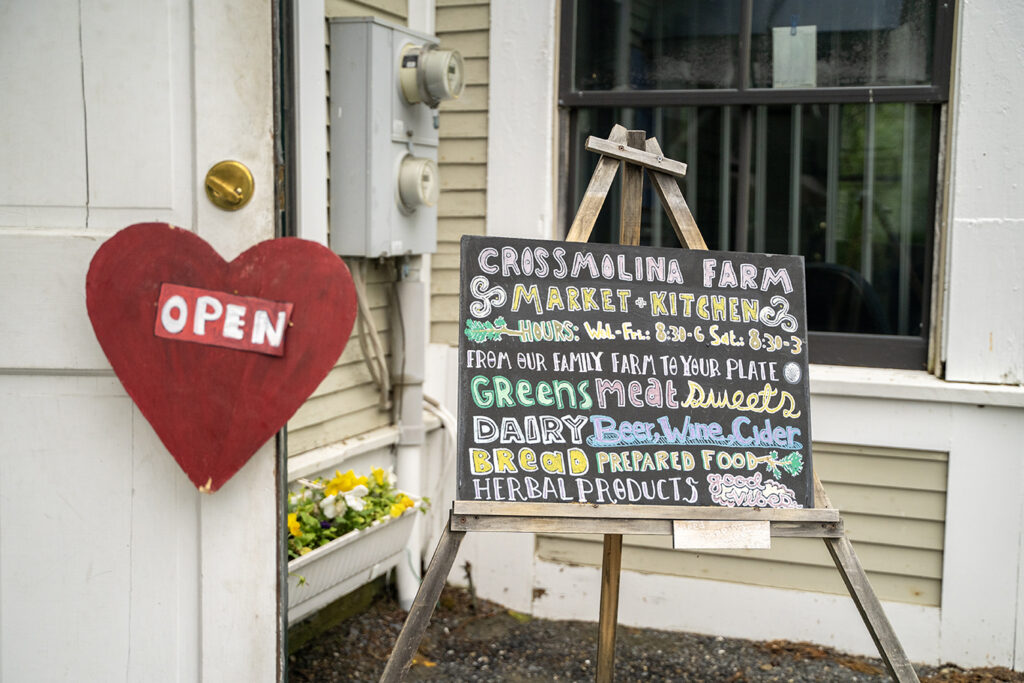 OPEN
CROSSMOLINA FARM
MARKET + KITCHEN
HOURS: Wed-Fri: 8:30-6 Sat: 8:30-3
FROM OUR FAMILY FARM TO YOUR PLATE
GREENS meat sweets
DAIRY Beer, Wine, Cider
BREAD PREPARED FOOD
HERBAL PRODUCTS good vibes